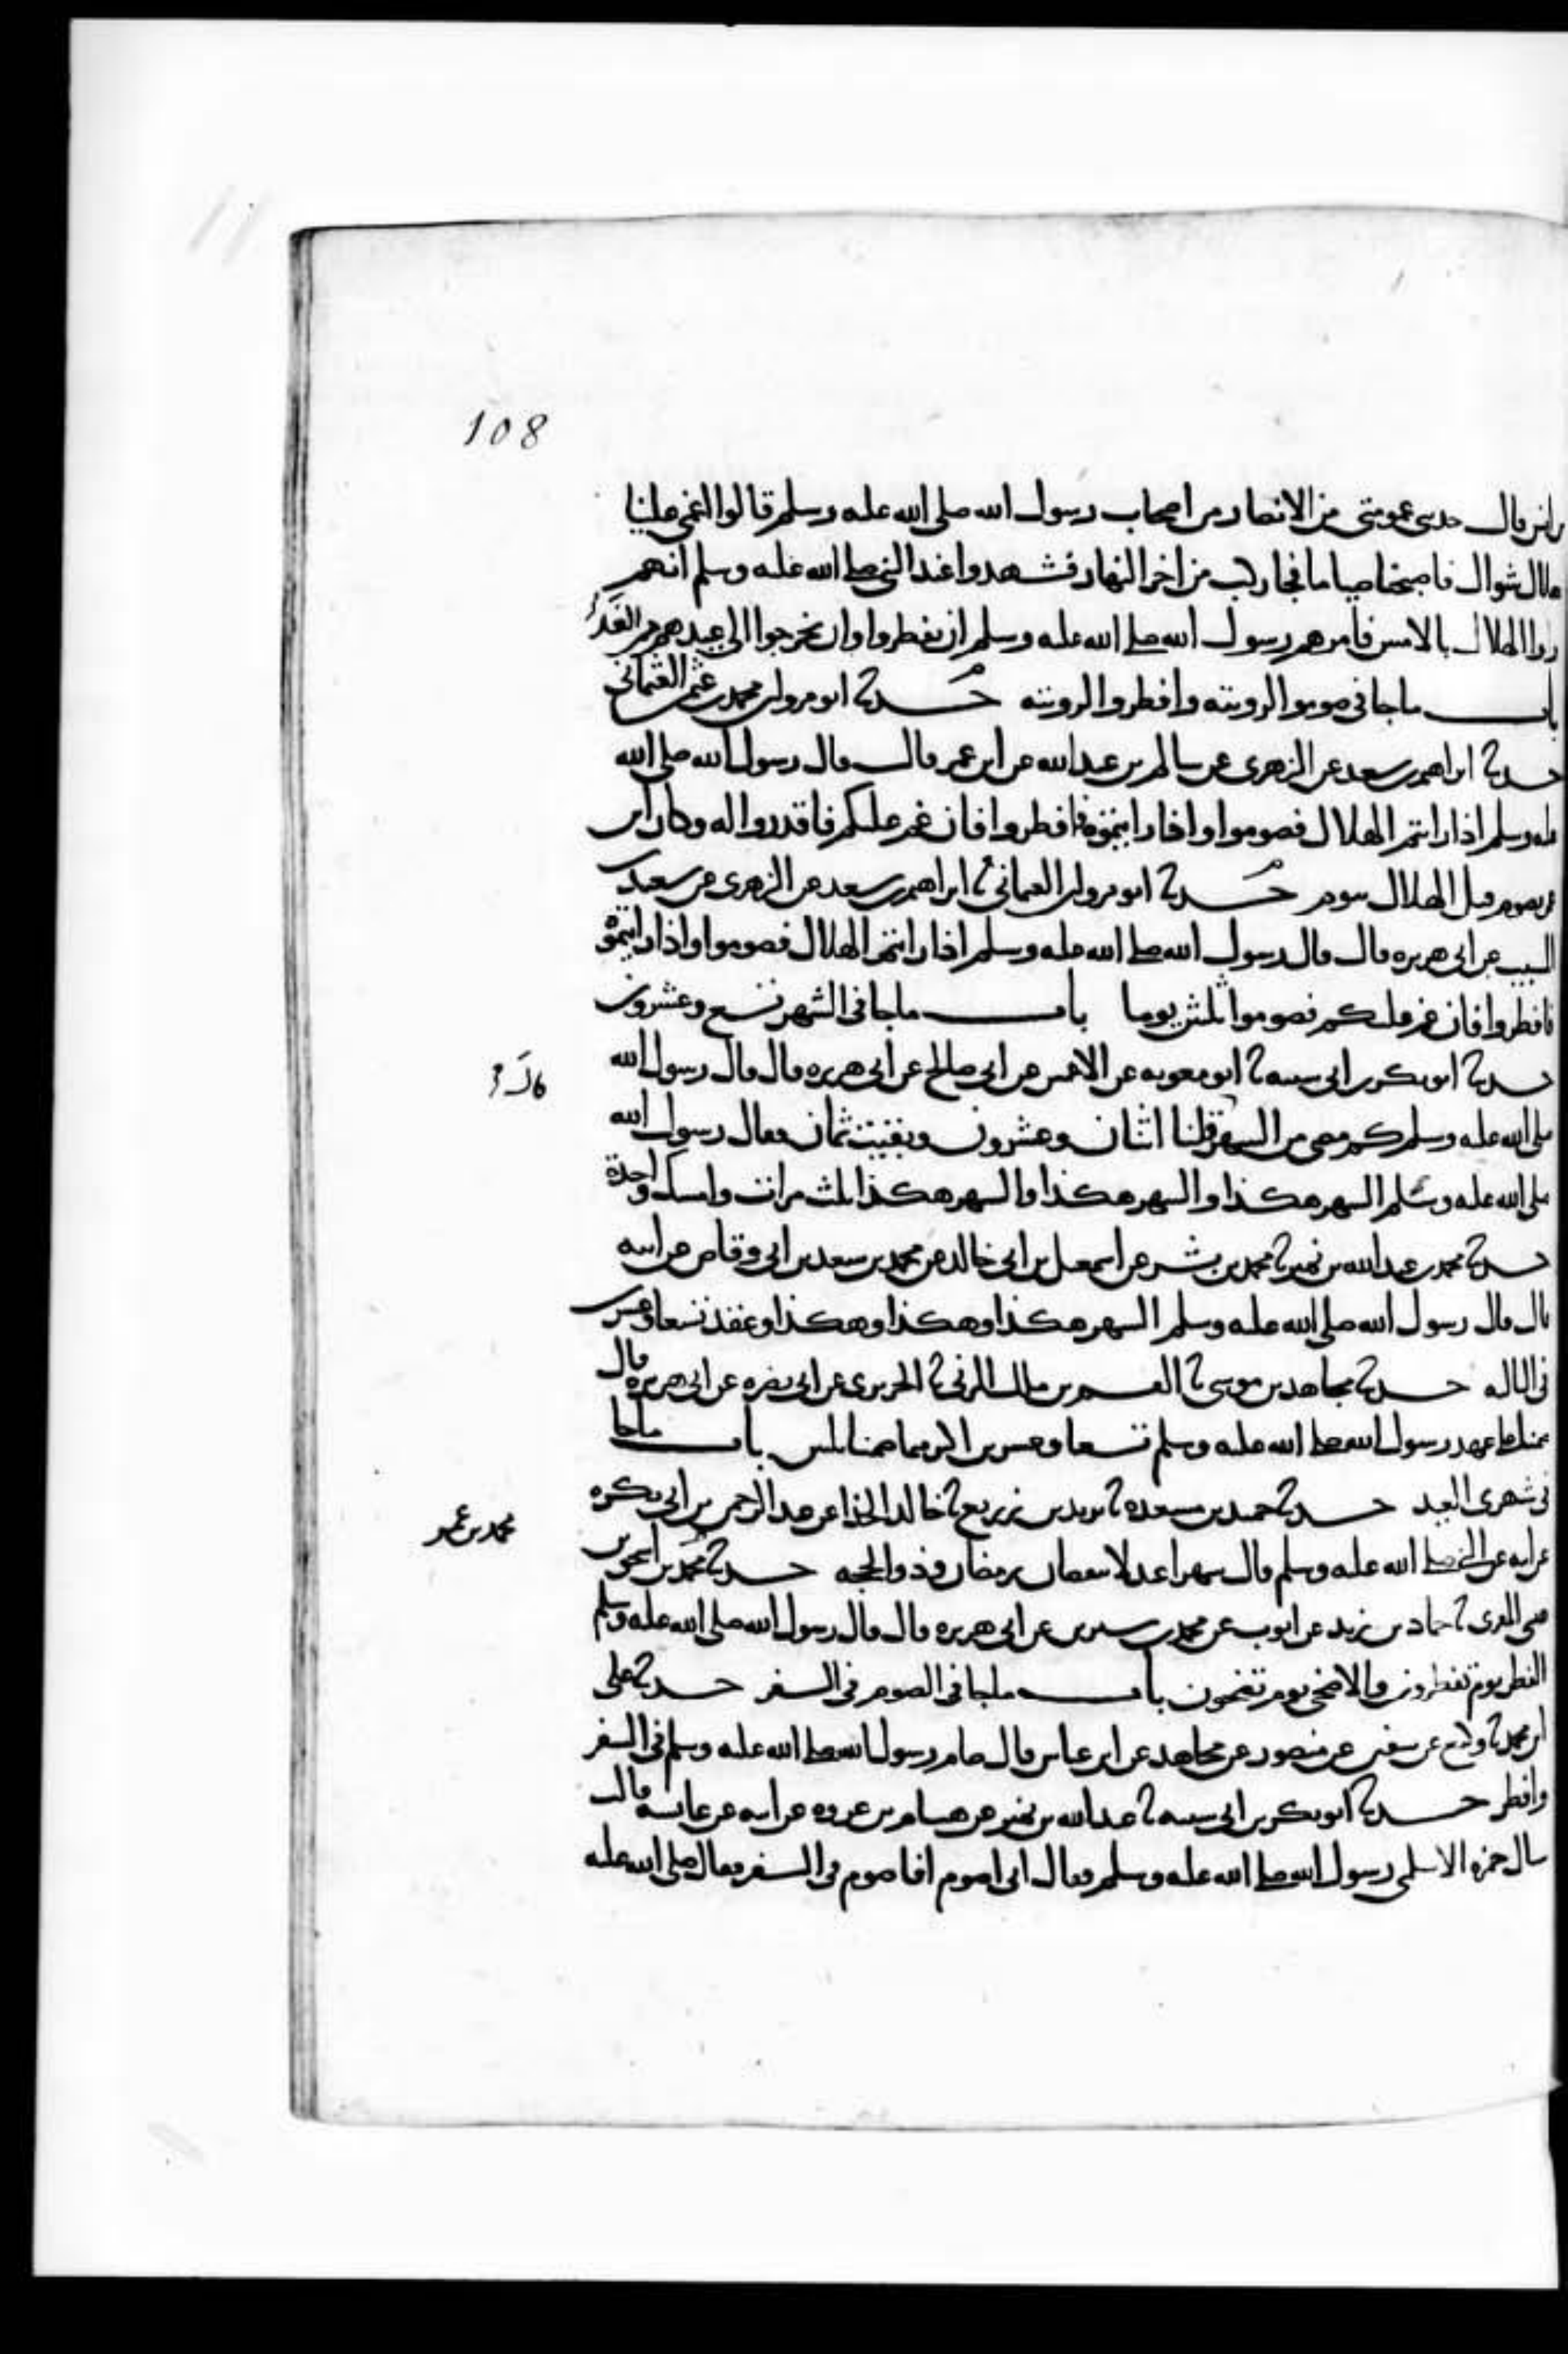 108
بن انس قال حدثنى عمومتى من الانصار من اصحاب رسول الله صلى الله عليه وسلم قالوا اغمى علينا
هلال شوال فاصبحنا صياما فجا ركب من اخر النهار فشهدوا عند النبي صلى الله عليه وسلم انهم
راوا الهلال بالامس فامرهم رسول الله صلى الله عليه وسلم ان يفطروا وان يخرجوا الى عيدهم من الغد
باب ما جا فى صوموا لرويته وافطروا لرويته حدثنا ابو مروان محمد بن عثمن العثمانى
حدثنا ابراهيم بن سعد عن الزهرى عن سالم بن عبد الله عن ابن عمر قال قال رسول الله صلى الله
عليه وسلم اذا رايتم الهلال فصوموا واذا رايتموه فافطروا فان غم عليكم فاقدروا له وكان ابن
عمر يصوم قبل الهلال بيوم حدثنا ابو مروان العثمانى ثنا ابراهيم بن سعد عن الزهرى عن سعيد بن
المسيب عن ابى هريره قال قال رسول الله صلى الله عليه وسلم اذا رايتم الهلال فصوموا واذا رايتموه
فافطروا فان غم عليكم فصوموا ثلثين يوما باب ما جا فى الشهر تسع وعشرون
حدثنا ابو بكر بن ابى شيبه ثنا ابو معويه عن الاعمش عن ابى صالح عن ابى هريره قال قال رسول الله
صلى الله عليه وسلم كم مضى من الشهر قلنا اثنان وعشرون وبقيت ثمان فقال رسول الله
صلى الله عليه وسلم الشهر هكذا والشهر هكذا والشهر هكذا ثلث مرات وامسك واحدة
حدثنا محمد بن عبد الله بن نمير ثنا محمد بن بشر عن اسمعيل بن ابى خالد عن محمد بن سعد بن ابى وقاص عن ابيه
قال قال رسول الله صلى الله عليه وسلم الشهر هكذا وهكذا وهكذا وعقد تسعا وعشرين
فى الثالثه حدثنا مجاهد بن موسى ثنا القسم بن ملك المزنى ثنا الجريرى عن ابى نضره عن ابى هريره قال
ما صمنا على عهد رسول الله صلى الله عليه وسلم تسعا وعشرين اكثر مما صمنا ثلثين باب ما جا
فى شهرى العيد حدثنا حميد بن مسعده ثنا يزيد بن زريع ثنا خالد الحذا عن عبد الرحمن بن ابى بكره
محمد بن عمر
عن ابيه عن النبي صلى الله عليه وسلم قال شهرا عيد لا ينقصان رمضان وذو الحجه حدثنا محمد بن
المقرى ثنا حماد بن زيد عن ايوب عن محمد بن سيرين عن ابى هريره قال قال رسول الله صلى الله عليه وسلم
الفطر يوم تفطرون والاضحى يوم تضحون باب ما جا فى الصوم فى السفر حدثنا على
ابن محمد ثنا وكيع عن سفين عن منصور عن مجاهد عن ابن عباس قال صام رسول الله صلى الله عليه وسلم فى السفر
وافطر حدثنا ابو بكر بن ابى شيبه ثنا عبد الله بن نمير عن هشام بن عروه عن ابيه عن عائشه قالت
سال حمزه الاسلمى رسول الله صلى الله عليه وسلم فقال انى اصوم افاصوم فى السفر فقال صلى الله عليه